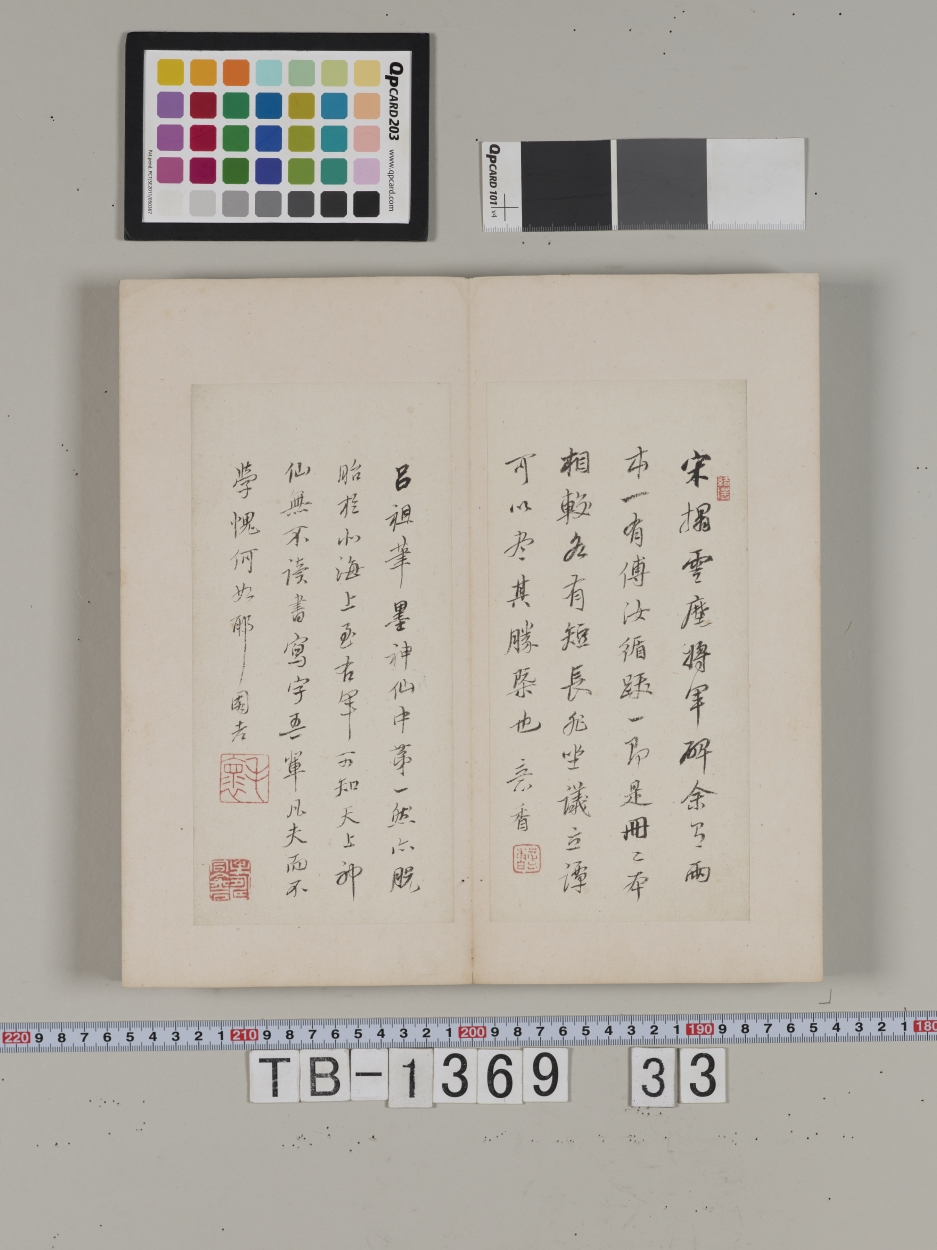 QPCARD 203 www.qpcard.com
QPCARD 101 v4
宋搨雲麾將軍碑余有兩
本一有傅汝循跋一即是冊二本
相較各有短長非坐議立譚
可以盡其勝槩也 香
呂祖筆墨神仙中第一然亦脫
胎於北海上至右軍可知天上神
仙無不读書寫字吾輩凡夫而不
學愧何如耶 國吉
220 9 8 7 6 5 4 3 2 1 210 9 8 7 6 5 4 3 2 1 200 9 8 7 6 5 4 3 2 1 190 9 8 7 6 5 4 3 2 1 180
TB-1369 33